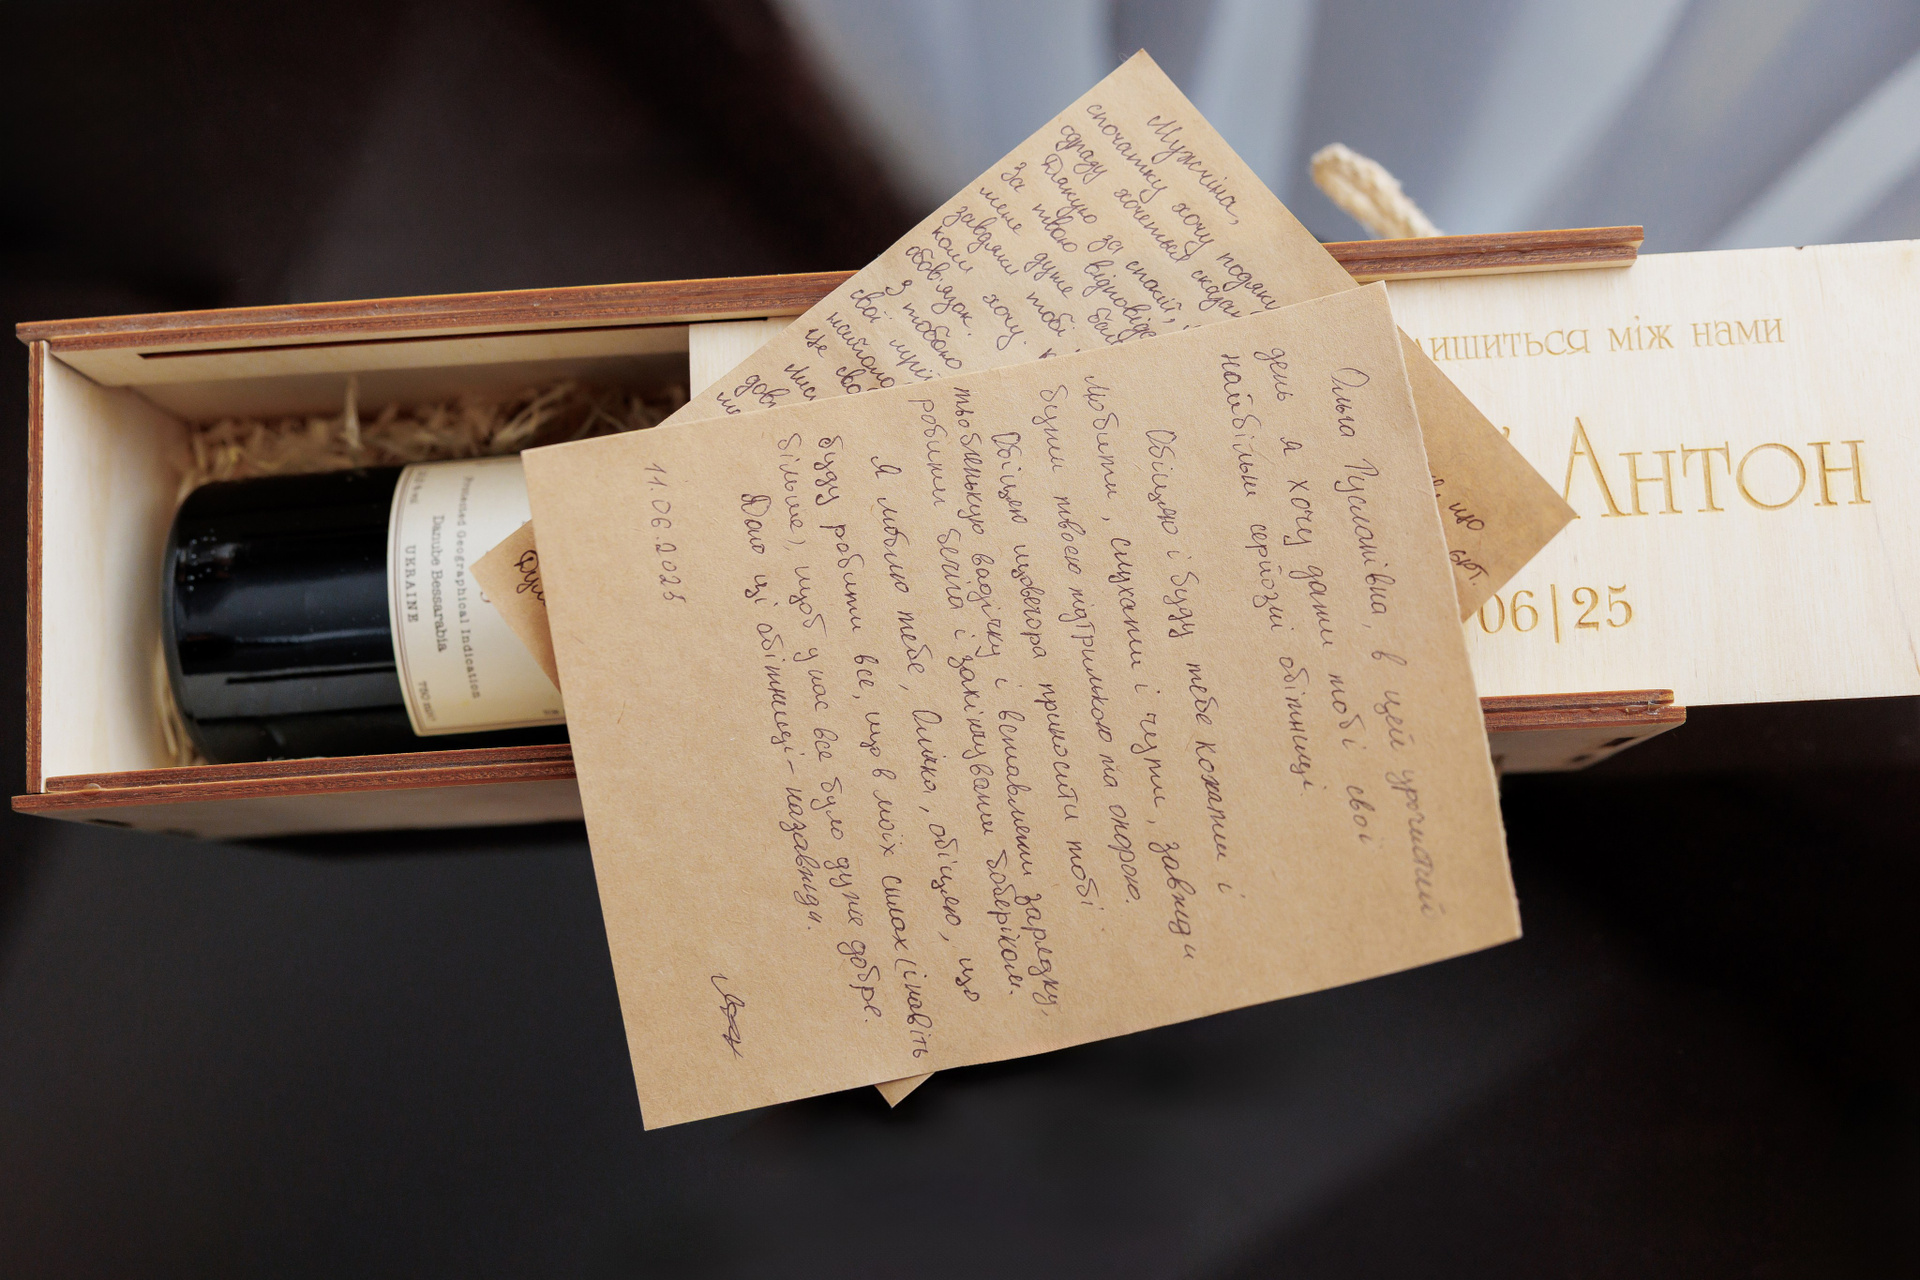 Ольга Русланівна, в цей урочистий
день я хочу дати тобі свої
найбільш серйозні обітниці.
Обіцяю і буду тебе кохати і
любити, слухати і чути, завжди
бути твоєю підтримкою та опорою.
Обіцяю щовечора приносити тобі
тьопленькую вадічку і вставляти зарядку,
робити бечіна і закінчувати боберіком.
Я люблю тебе, Олічка, обіцяю, що
буду робити все, що в моїх силах (і навіть
більше), щоб у нас все було дуже добре.
Даю ці обітниці - назавжди.
11.06.2025
Мужчіна,
спочатку хочу подяку
одразу хочеться сказати
Дякую за спокій,
за твою відповіда
мене дуже
завдяки тобі
коли хочу
обов'язок.
З тобою
свої мрії
найголо
це сво
дові
що
лишиться між нами
Антон
06|25
Protected Geographical Indication
Danube Bessarabia
UKRAINE